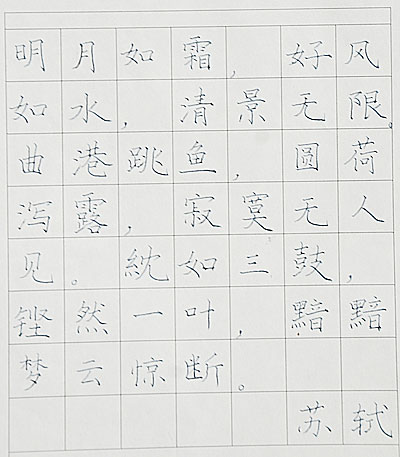 明月如霜,好风
如水,清景无限。
曲港跳鱼,圆荷
泻露,寂寞无人
见。紞如三鼓,
铿然一叶,黯黯
梦云惊断。
苏轼